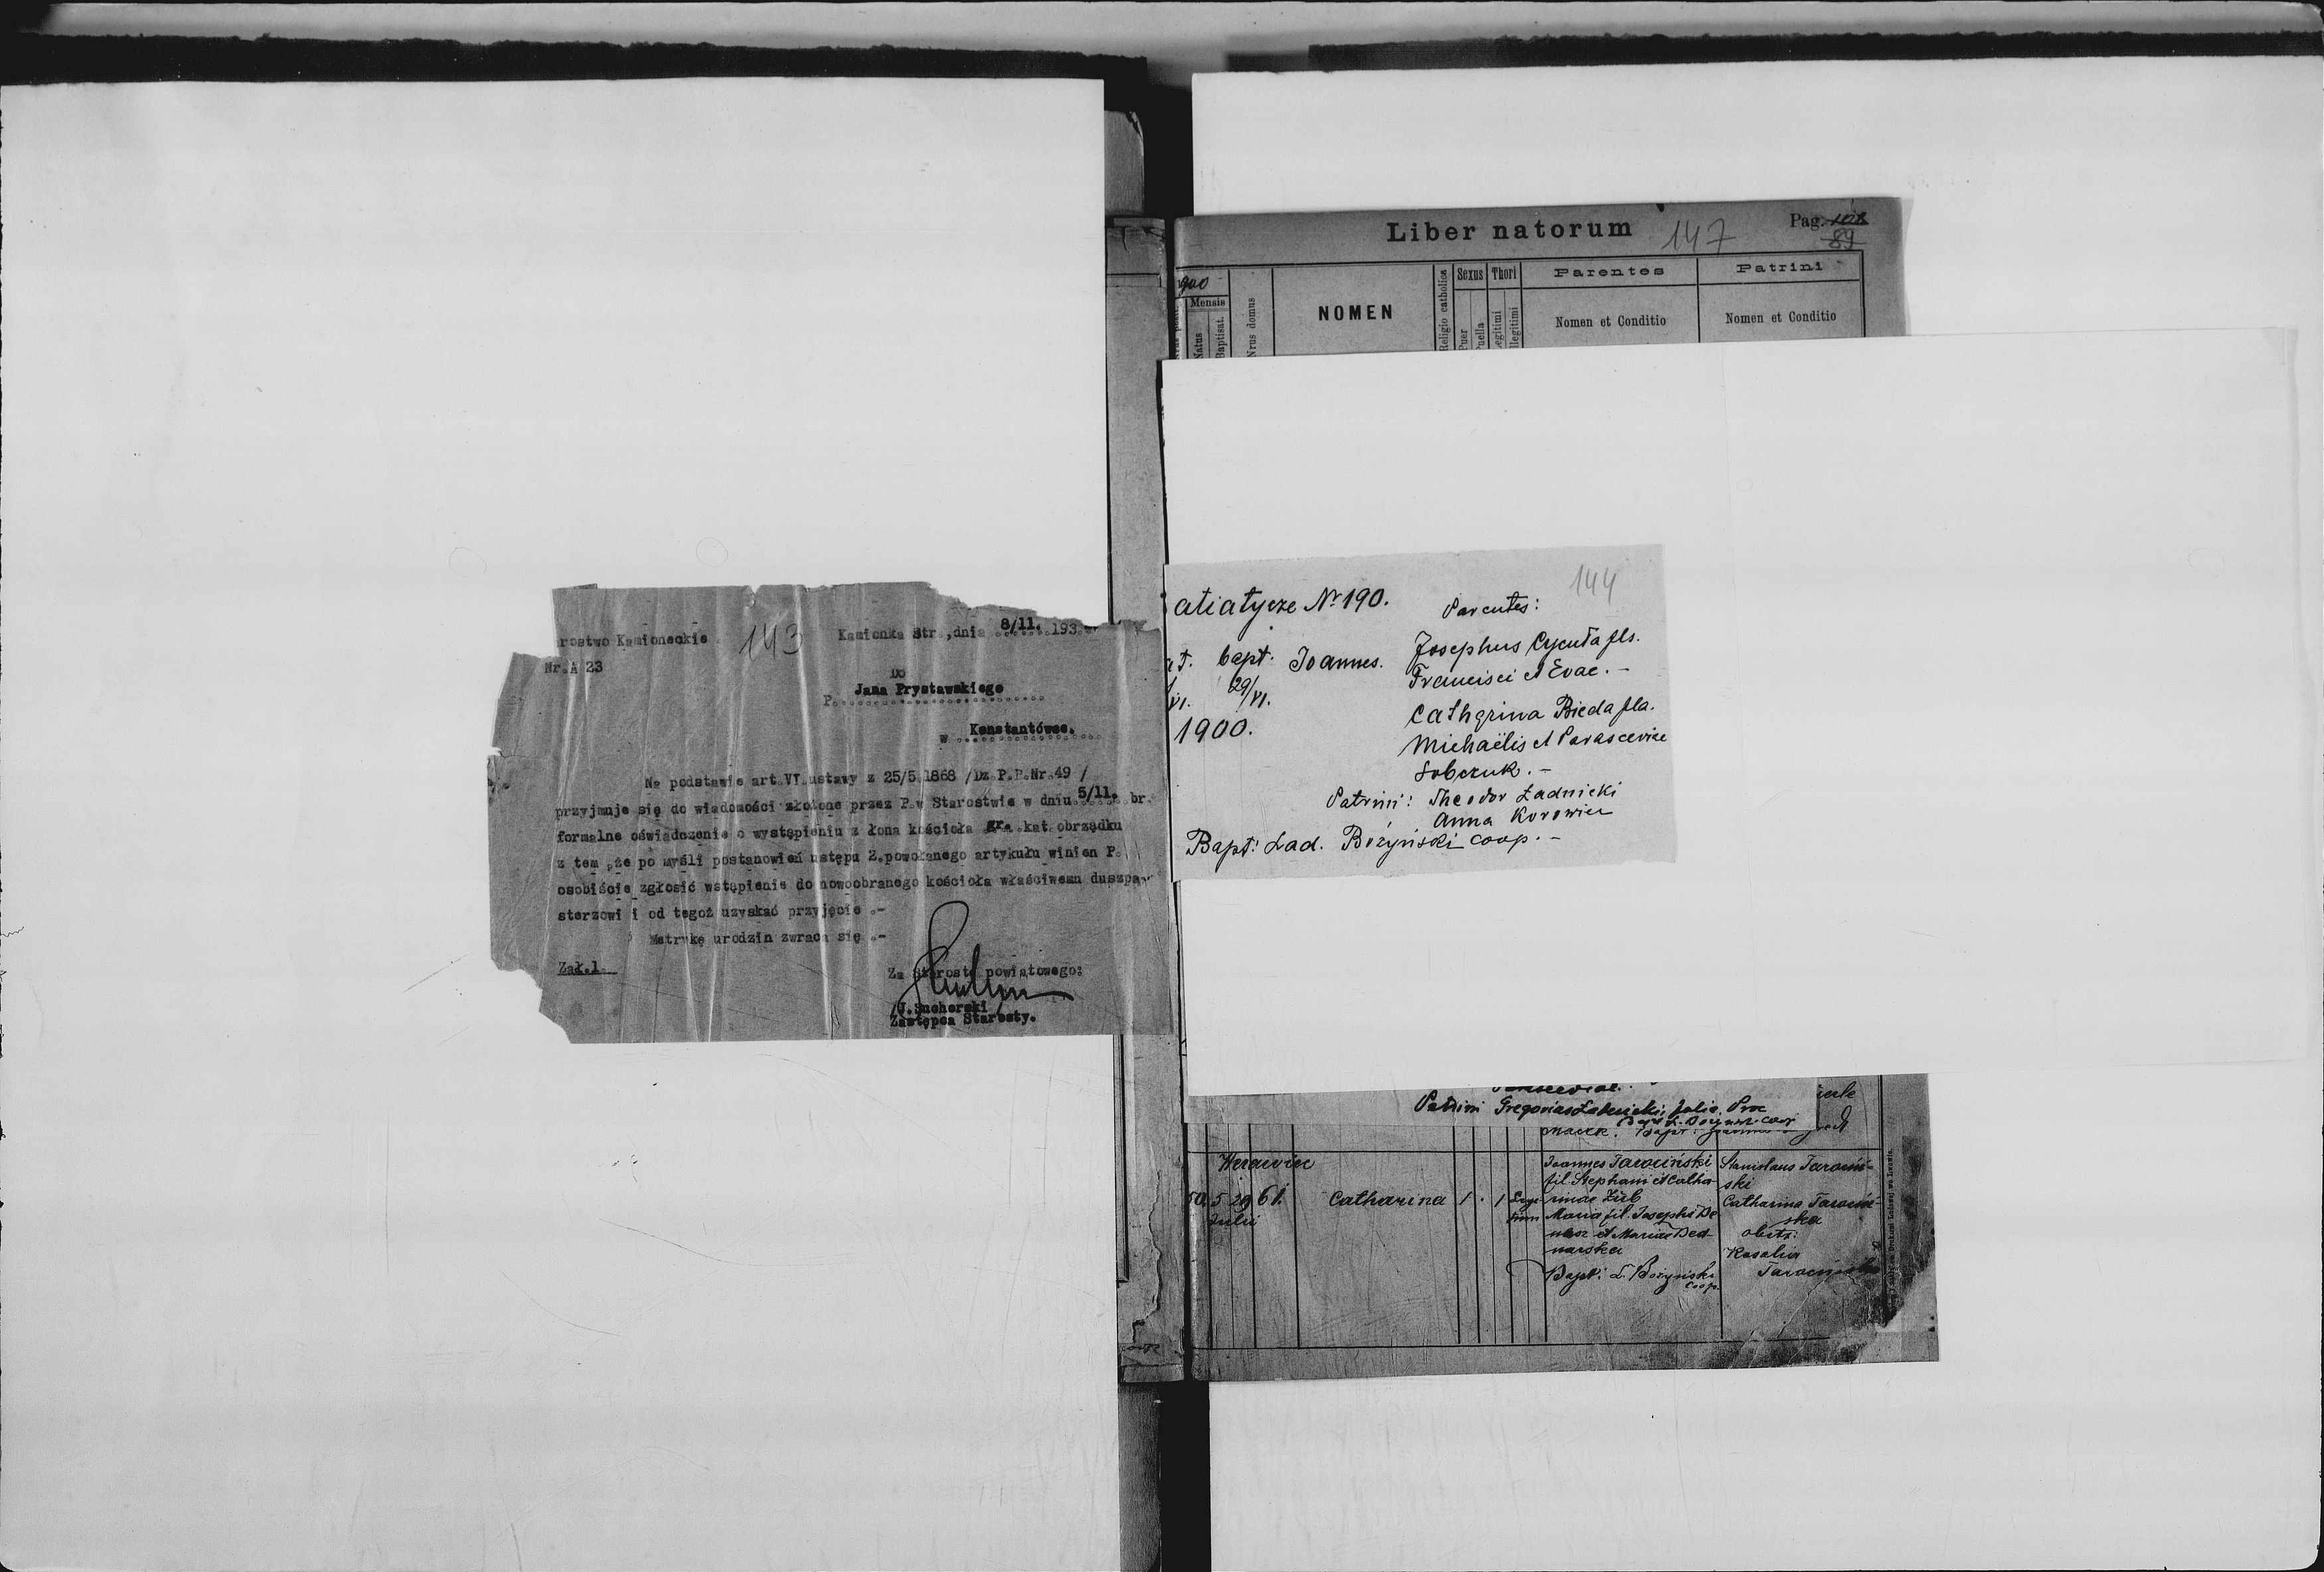 rostwo Kamioneckie
143
Kamionka Str., dnia 8/11. 193
Nr. A 23
Do
P. Jana Prystawskiego
w Konstantówce.
Na podstawie art.VI.ustawy z 25/5.1868 /Dz.P.P.Nr.49 /
przyjmuje się do wiadomości złożone przez P.w Starostwie w dniu 5/11. br.
formalne oświadczenie o wystąpieniu z łona kościoła gr. kat.obrządku
z tem ,że po myśli postanowień ustępu 2.powołanego artykułu winien P.
osobiście zgłosić wstąpienie do nowoobranego kościoła właściwemu duszpa-
sterzowi i od tegoż uzyskać przyjęcie .-
Metrykę urodzin zwraca się .-
Zał.1.
Za Starostę powiatowego:
/J.Sucherski/
Zastępca Starosty.
Liber natorum
147
Pag. 108
89
900
Mensis
Natus
Baptisat.
Nrus domus
NOMEN
Religio catholica
Sexus
Puer
Puella
Thori
Legitimi
Illegitimi
Parentes
Nomen et Conditio
Patrini
Nomen et Conditio
144
atiatycze Nr 190.
Parentes:
bapt. Joannes.
Josephus Cycuta fls.
Francisci et Evae. -
29/VI.
VI.
1900.
Catharina Bieda fla.
Michaëlis et Parasceviae
Sobczuk. -
Patrini: Theodor Ładnicki
Anna Korowiec
Bapt: Lad. Bożyński coop. -
Patrini Gregorius Ładnicki; Julia
Werawiec
50. 5 29 61. Catharina 1 . 1
Julii
Joannes Tarociński
fil. Stephani et Catha-
rinae Zub
Maria fil. Josephi
et Mariae Bed-
narska
Bapt: L. Bożyński
coop.
Stanislaus Tarociń-
ski
Catharina Tarociń-
ska
obstz:
Rosalia
Tarocińska